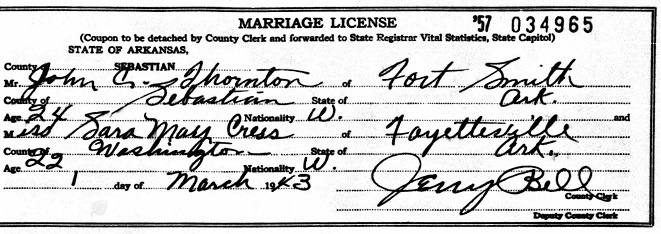 MARRIAGE LICENSE '57 034965
(Coupon to be detached by County Clerk and forwarded to State Registrar Vital Statistics, State Capitol)
STATE OF ARKANSAS,
County of SEBASTIAN
Mr. John C. Thornton of Fort Smith
County of Sebastian State of Ark.
Age 24 Nationality W. and
Miss Sara May Cress of Fayetteville
County of Washington State of Ark.
Age 22 Nationality W.
1 day of March 1943 Jerry Bell
County Clerk
Deputy County Clerk